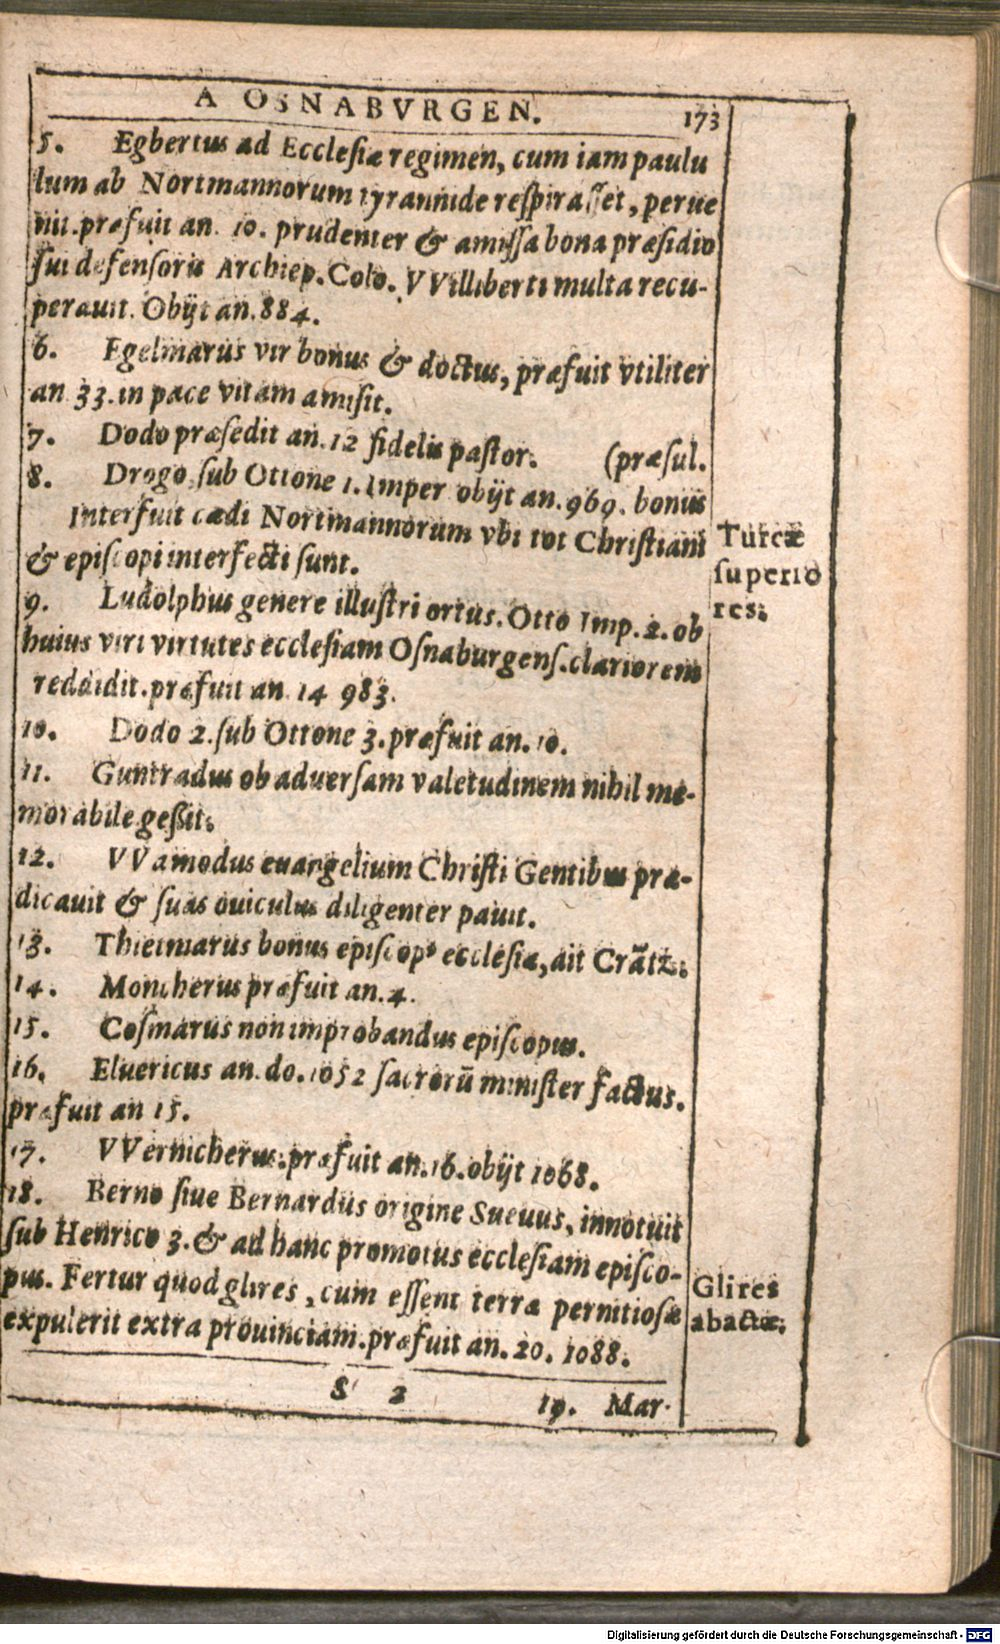 A OSNABVRGEN.
173
5. Egbertus ad Ecclesiæ regimen, cum iam paulu
lum ab Nortmannorum tyrannide respirasset, perue
nit. præfuit an. 10. prudenter & amissa bona præsidio
sui defensoris Archiep. Colo. VVilliberti multa recu-
perauit. Obijt an. 884.
6. Egelmarus vir bonus & doctus, præfuit vtiliter
an. 33. in pace vitam amisit.
7. Dodo præsedit an. 12 fidelis pastor. (præsul.
8. Drogo sub Ottone 1. Imper obijt an. 969. bonus
Interfuit cædi Nortmannorum vbi tot Christiani
& episcopi interfecti sunt.
Turcæ
superio
res.
9. Ludolphus genere illustri ortus. Otto Imp. 2. ob
huius viri virtutes ecclesiam Osnaburgens. clariorem
reddidit. præfuit an. 14 983.
10. Dodo 2. sub Ottone 3. præfuit an. 10.
11. Guntradus ob aduersam valetudinem nihil me-
morabile geßit.
12. VVamodus euangelium Christi Gentibus præ-
dicauit & suas ouiculas diligenter pauit.
13. Thietmarus bonus episcopꝰ ecclesiæ, ait Crãtz.
14. Moncherus præfuit an. 4.
15. Cosmarus non improbandus episcopus.
16. Eluericus an. do. 1052 sacrorũ minister factus.
præfuit an 15.
17. VVernicherus. præfuit an. 16. obijt 1068.
18. Berno siue Bernardus origine Sueuus, innotuit
sub Henrico 3. & ad hanc promotus ecclesiam episco-
pus. Fertur quod glires, cum essent terræ pernitiosæ
expulerit extra prouinciam. præfuit an. 20. 1088.
Glires
abactæ.
S 2
19. Mar-
Digitalisierung gefördert durch die Deutsche Forschungsgemeinschaft - DFG